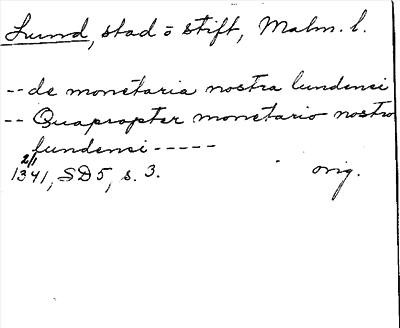 Lund, stad o stift, Malm. l.
-- de monetaria nostra lundensi
-- Quapropter monetario nostro
lundensi -----
2/1
1341, SD5, s. 3. orig.